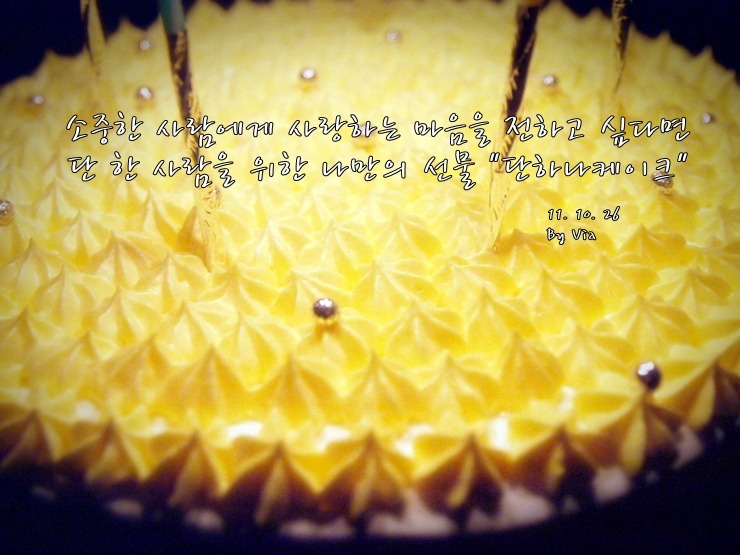 소중한 사람에게 사랑하는 마음을 전하고 싶다면
단 한 사람을 위한 나만의 선물 "단하나케이크"
11. 10. 26
By Via